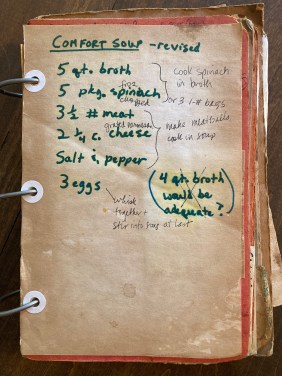 COMFORT SOUP - revised
5 qt. broth
cook spinach
in broth
5 pkg. spinach
or 3 1-# bags
3 ½ # meat
make meatballs
cook in soup
2 ½ c. cheese
Salt & pepper
3 eggs
whisk
together +
stir into soup at last
(4 qt. broth
would be
adequate?)